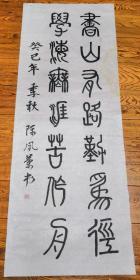 書山有路勤為徑
學海無涯苦作舟
癸巳年 季秋 陈